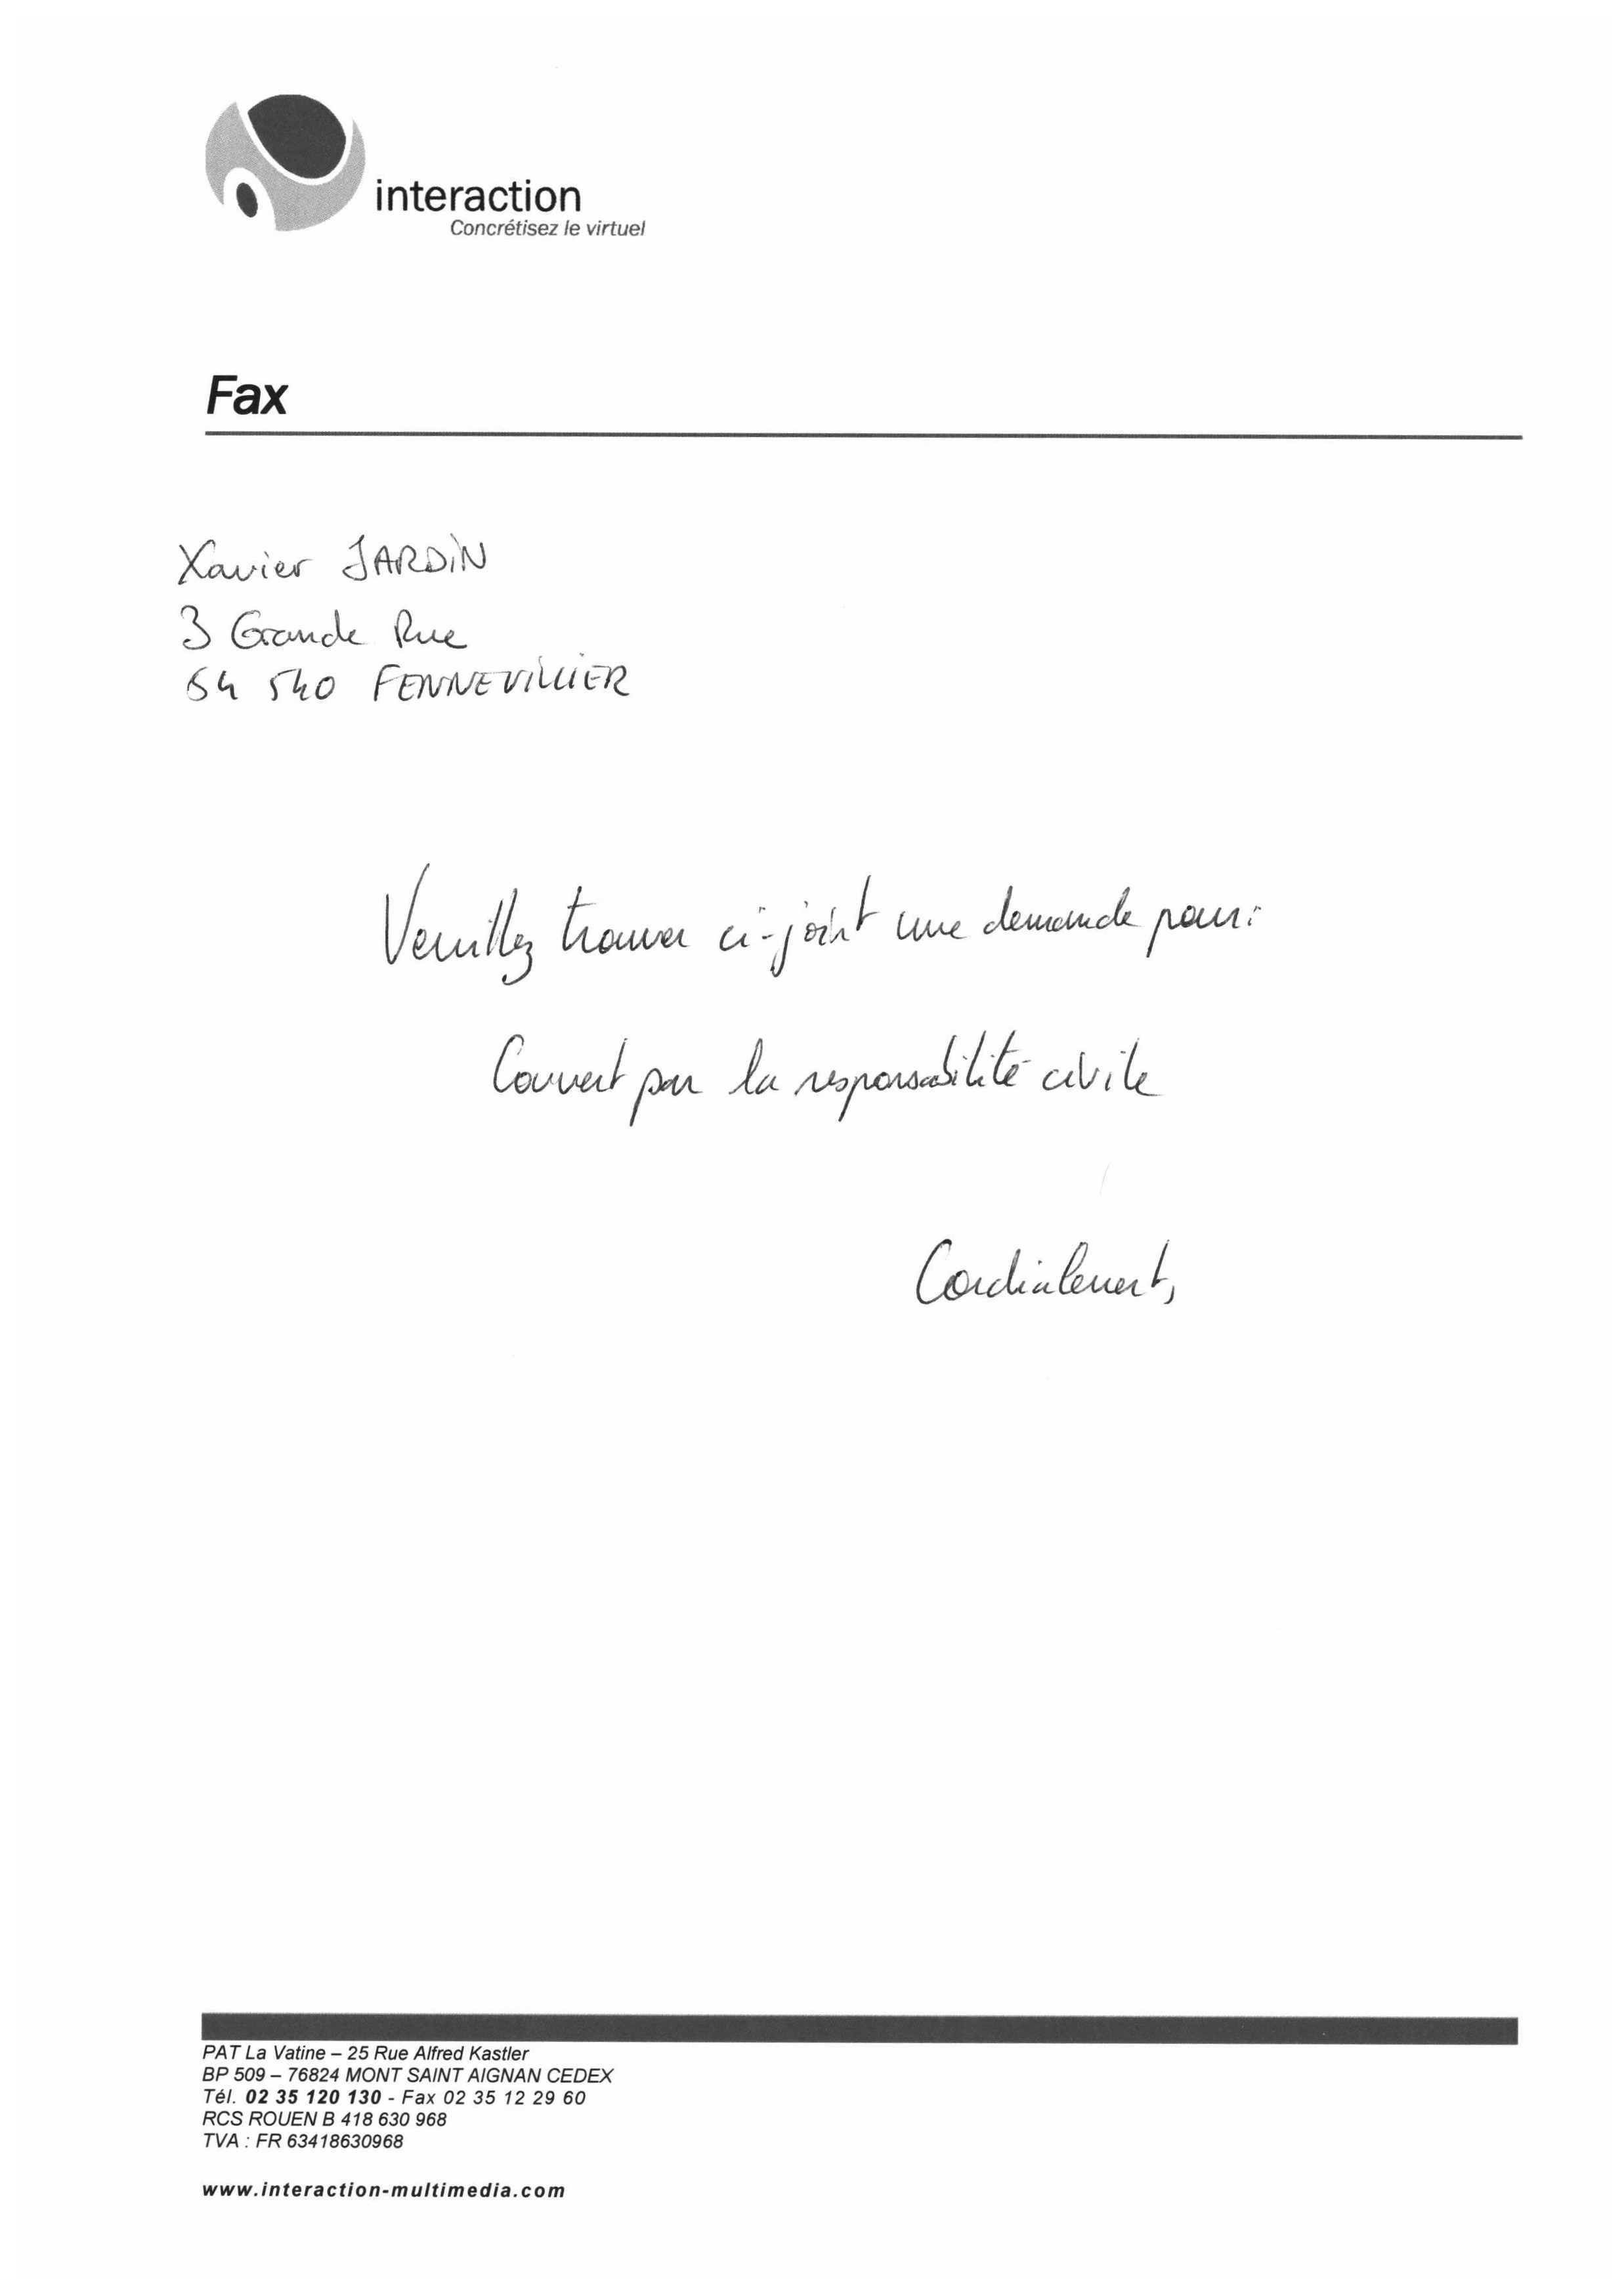 interaction
Concrétisez le virtuel
Fax
Xavier JARDIN
3 Grande Rue
54 540 FENNEVILLIER
Veuillez trouver ci-joint une demande pour:
Couvert par la responsabilité civile
Cordialement,
PAT La Vatine – 25 Rue Alfred Kastler
BP 509 – 76824 MONT SAINT AIGNAN CEDEX
Tél. 02 35 120 130 - Fax 02 35 12 29 60
RCS ROUEN B 418 630 968
TVA : FR 63418630968
www.interaction-multimedia.com